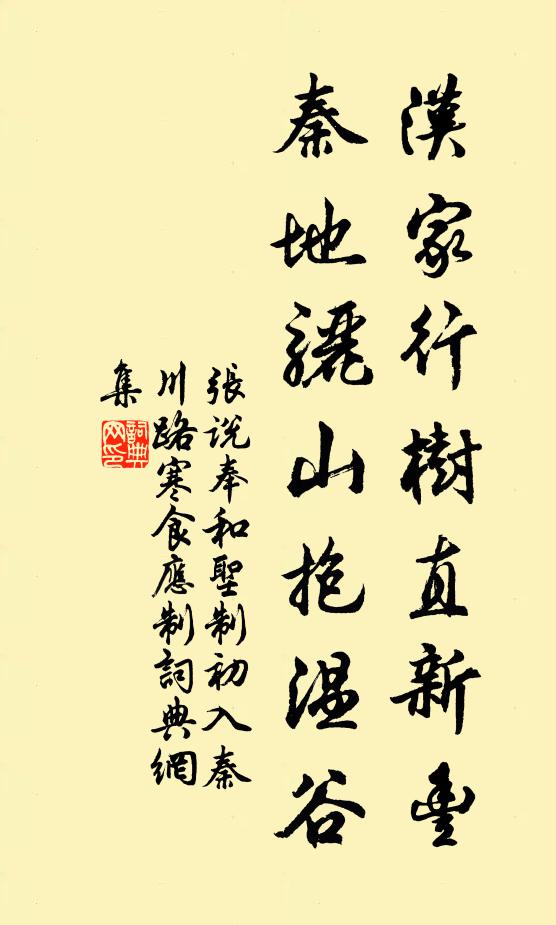 漢家行樹直新豐
秦地驪山抱溫谷
張說奉和聖制初入秦
川路寒食應制詞典網
集
詞典
網印